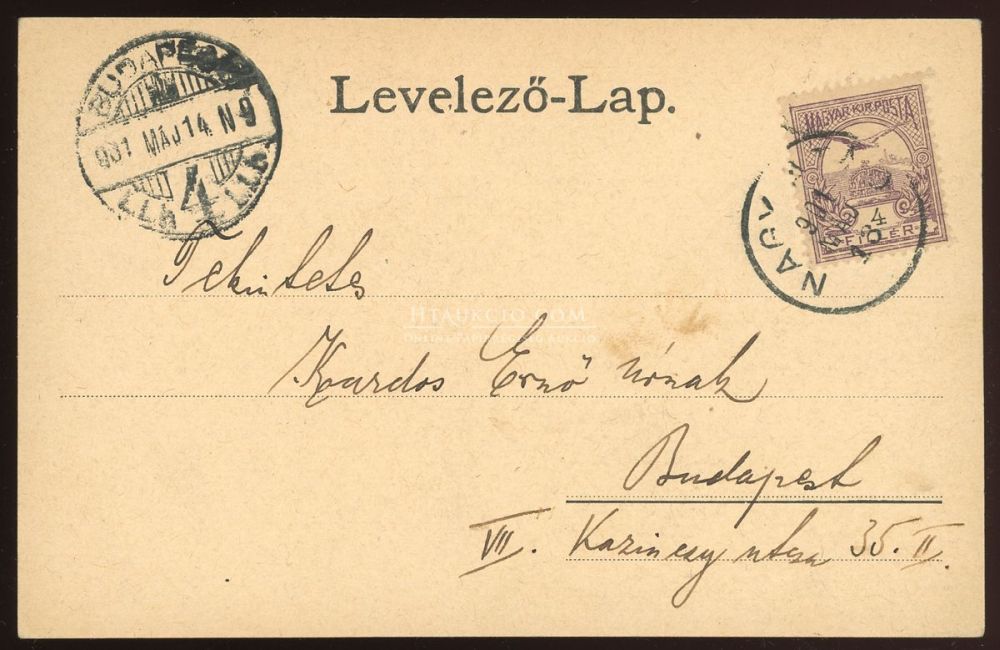 BUDAPEST
901 MÁJ 14 N 9
4
Levelező-Lap.
MAGYAR·KIR·POSTA
4
FILLÉR
Tekintetes
HTAUKCIO.COM
Kardos Ernő úrnak
Budapest
VII. Kazinczy utca 35. II.